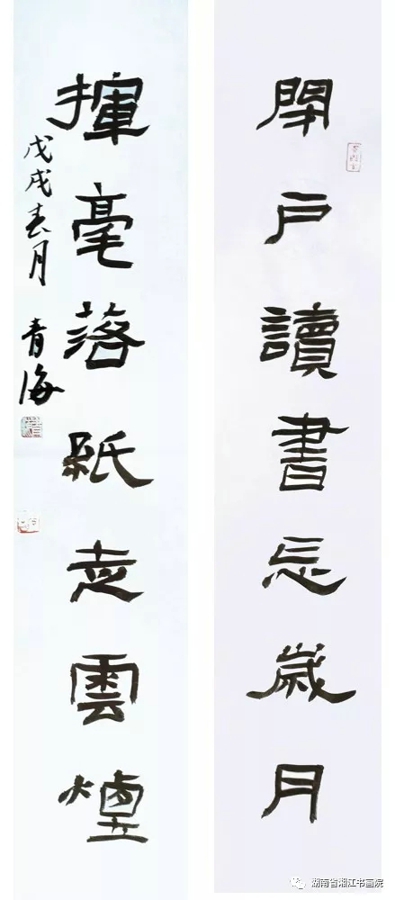 閉户讀書忘歲月
揮毫落紙走雲煙
戊戌春月 青海
湖南省湘江书画院